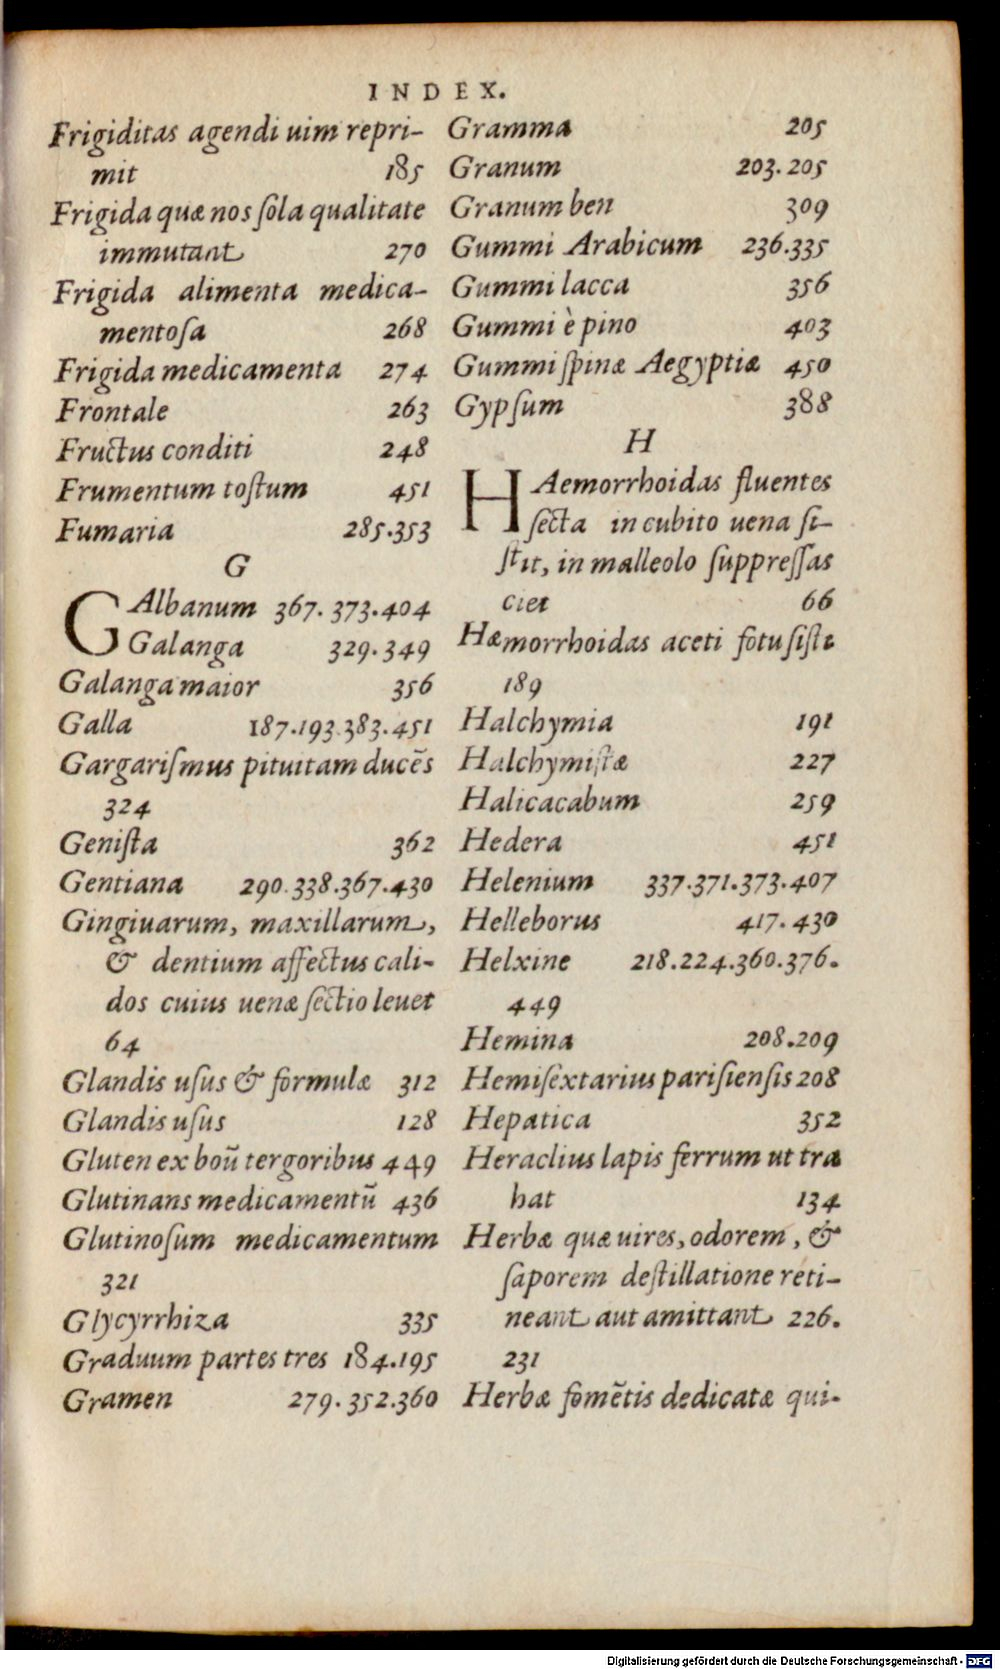 INDEX.
Frigiditas agendi uim repri-
mit 185
Frigida quæ nos ſola qualitate
immutant 270
Frigida alimenta medica-
mentoſa 268
Frigida medicamenta 274
Frontale 263
Fructus conditi 248
Frumentum toſtum 451
Fumaria 285.353
G
GAlbanum 367.373.404
Galanga 329.349
Galanga maior 356
Galla 187.193.383.451
Gargariſmus pituitam ducẽs
324
Geniſta 362
Gentiana 290.338.367.430
Gingiuarum, maxillarum,
& dentium affectus cali-
dos cuius uenæ ſectio leuet
64
Glandis uſus & formulæ 312
Glandis uſus 128
Gluten ex boũ tergoribus 449
Glutinans medicamentũ 436
Glutinoſum medicamentum
321
Glycyrrhiza 335
Graduum partes tres 184.195
Gramen 279.352.360
Gramma 205
Granum 203.205
Granum ben 309
Gummi Arabicum 236.335
Gummi lacca 356
Gummi è pino 403
Gummi ſpinæ Aegyptiæ 450
Gypſum 388
H
HAemorrhoidas fluentes
ſecta in cubito uena ſi-
ſtit, in malleolo ſuppreſſas
ciet 66
Hæmorrhoidas aceti fotu ſiſti
189
Halchymia 191
Halchymiſtæ 227
Halicacabum 259
Hedera 451
Helenium 337.371.373.407
Helleborus 417.430
Helxine 218.224.360.376.
449
Hemina 208.209
Hemiſextarius pariſienſis 208
Hepatica 352
Heraclius lapis ferrum ut tra
hat 134
Herbæ quæ uires, odorem, &
ſaporem deſtillatione reti-
neant aut amittant 226.
231
Herbæ fomẽtis dedicatæ qui-
Digitalisierung gefördert durch die Deutsche Forschungsgemeinschaft - DFG